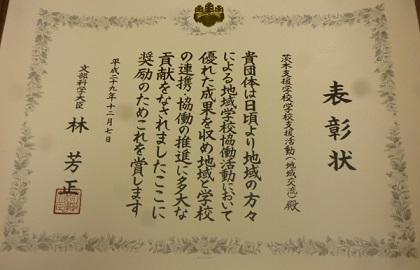 表彰状
茨木支援学校学校支援活動(地域交流)殿
貴団体は日頃より地域の方々
による地域学校協働活動において
優れた成果を収め地域と学校
の連携・協働の推進に多大な
貢献をなされましたここに
奨励のためこれを賞します
平成二十九年十二月七日
文部科学大臣
林芳正